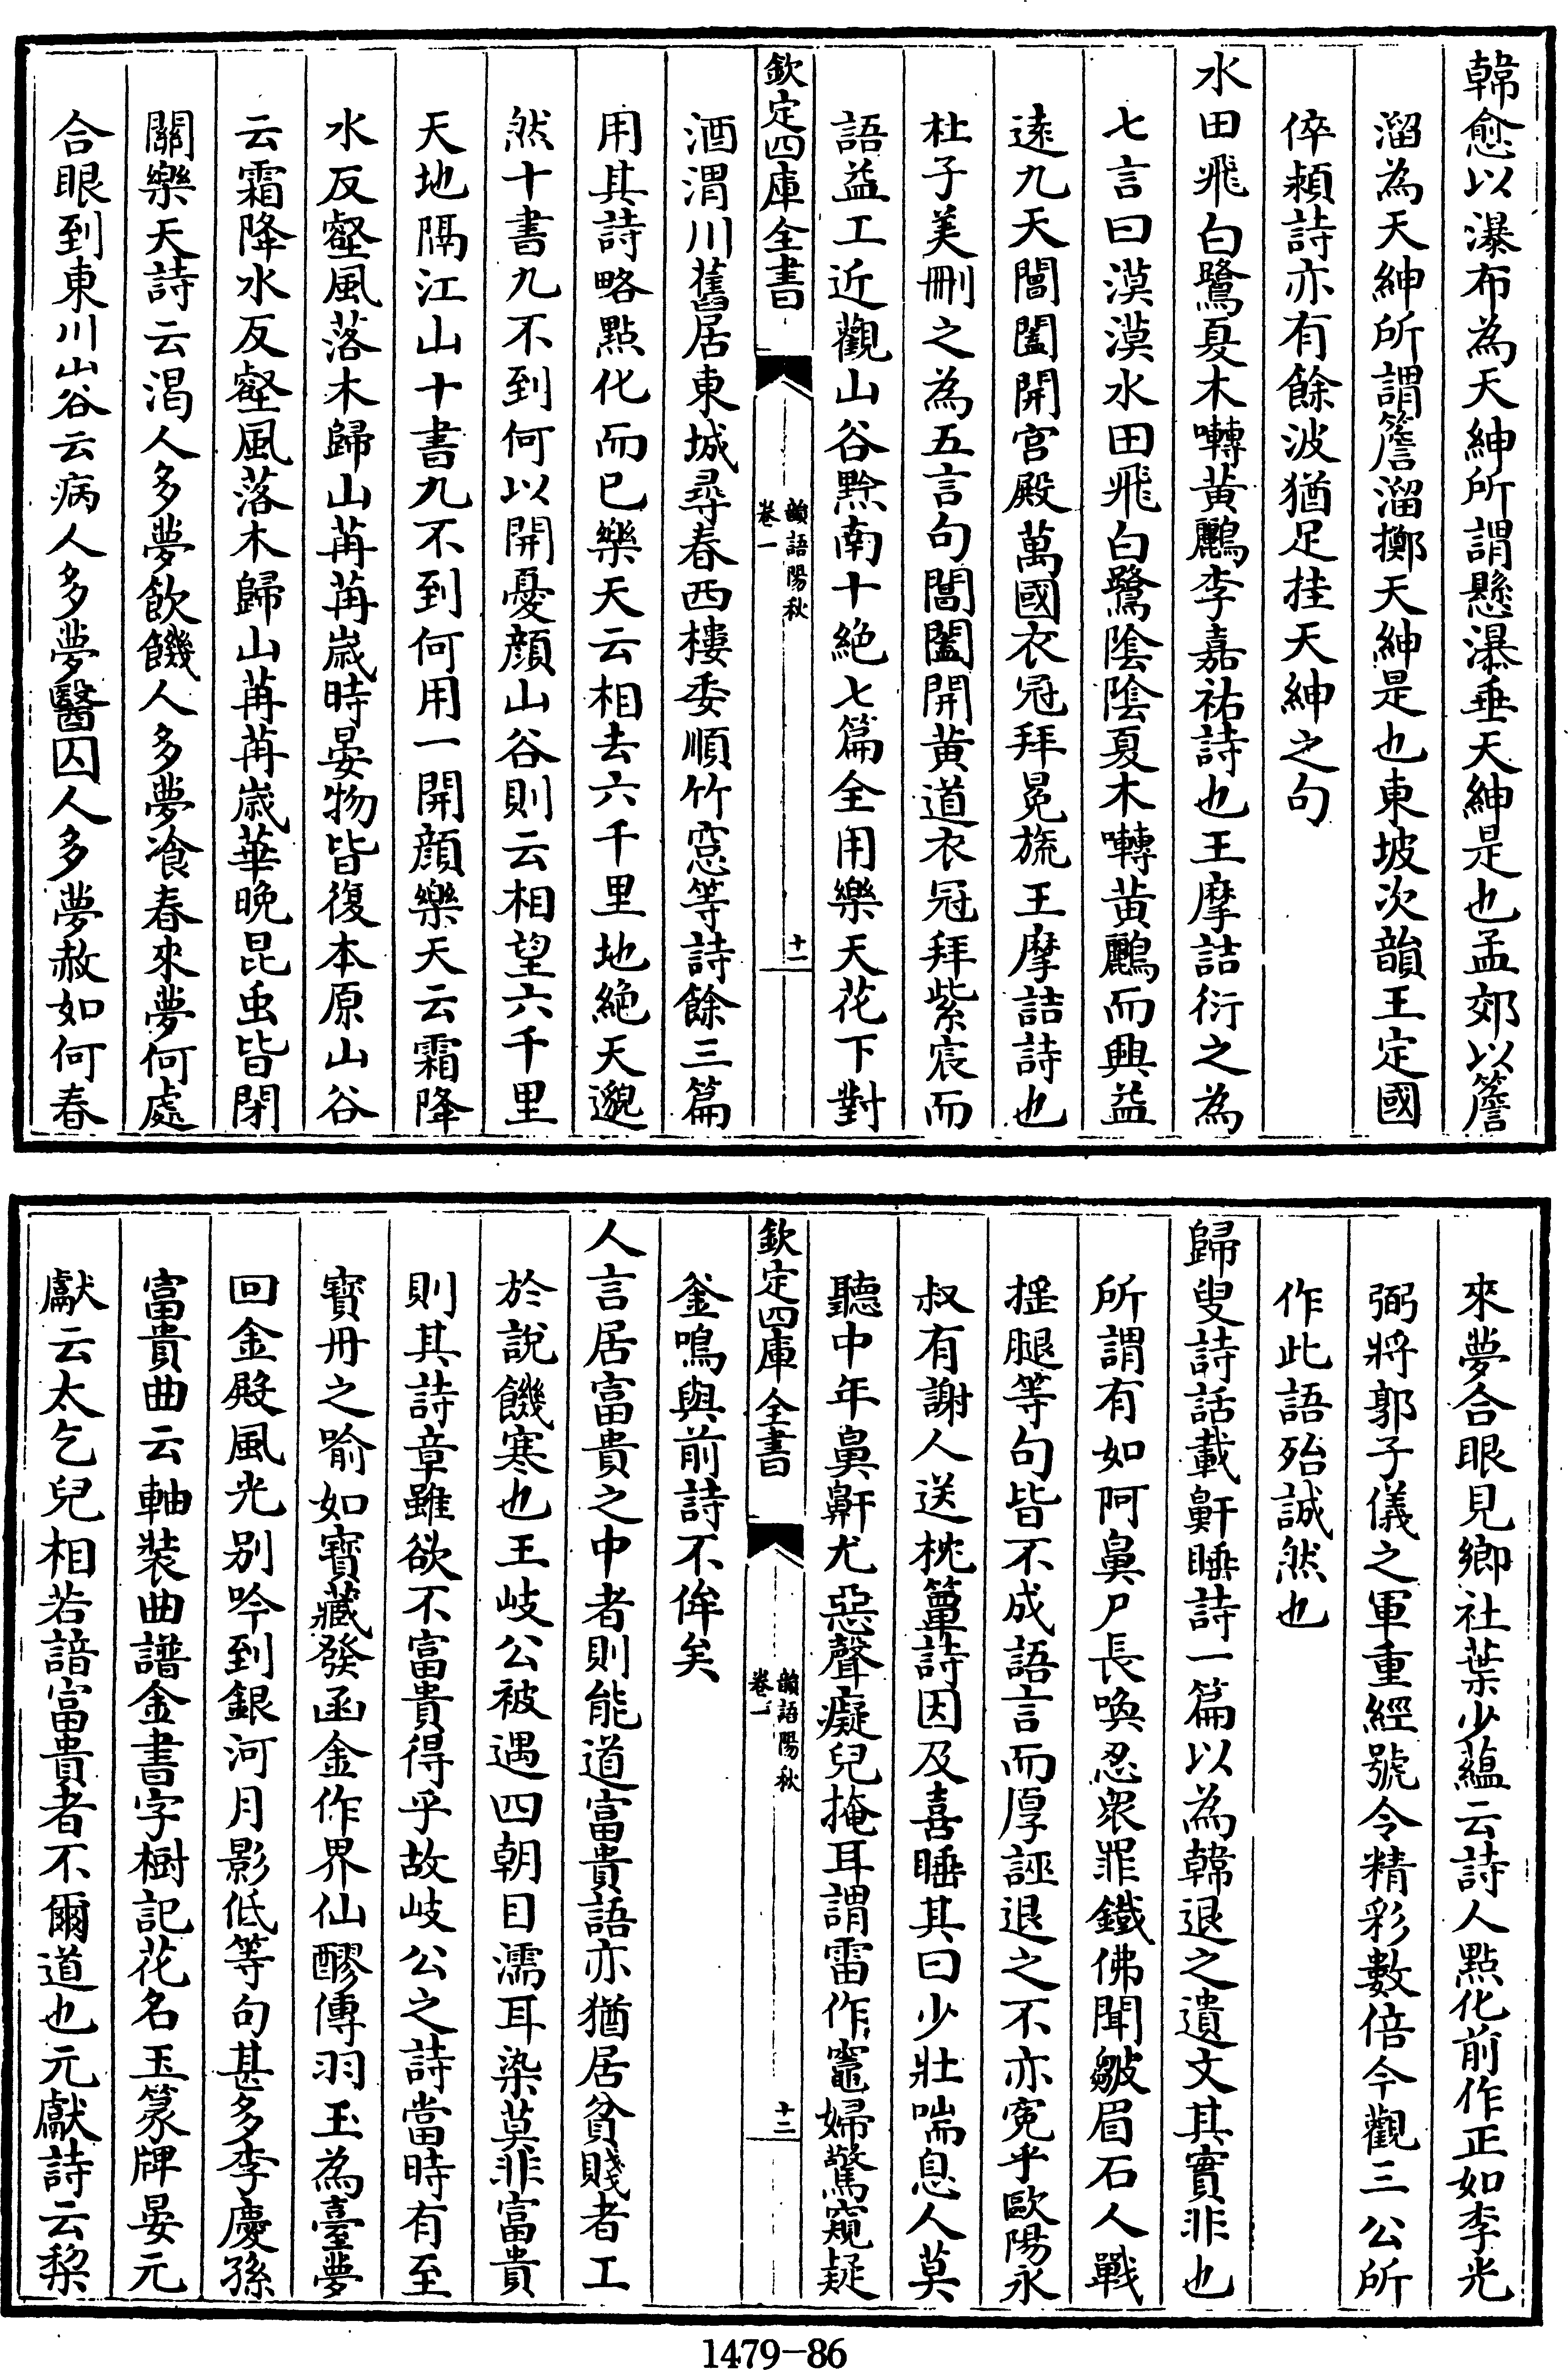 韓愈以瀑布為天紳所謂懸瀑垂天紳是也孟郊以簷
溜為天紳所謂簷溜擲天紳是也東坡次韻王定國
倅潁詩亦有餘波猶足挂天紳之句
水田飛白鷺夏木囀黃鸝李嘉祐詩也王摩詰衍之為
七言曰漠漠水田飛白鷺陰陰夏木囀黃鸝而興益
逺九天閶闔開宫殿萬國衣冠拜冕旒王摩詰詩也
杜子美刪之為五言句閶闔開黄道衣冠拜紫宸而
語益工近觀山谷黔南十絶七篇全用樂天花下對
欽定四庫全書
韻語陽秋
卷一
十一
酒渭川舊居東城尋春西樓委順竹窓等詩餘三篇
用其詩略點化而已樂天云相去六千里地絶天邈
然十書九不到何以開憂顔山谷則云相望六千里
天地隔江山十書九不到何用一開顔樂天云霜降
水反壑風落木歸山苒苒歲時晏物皆復本原山谷
云霜降水反壑風落木歸山苒苒歲華晚昆虫皆閉
關樂天詩云渇人多夢飲饑人多夢飡春來夢何處
合眼到東川山谷云病人多夢醫囚人多夢赦如何春
來夢合眼見鄉社葉少藴云詩人點化前作正如李光
弼將郭子儀之軍重經號令精彩數倍今觀三公所
作此語殆誠然也
歸叟詩話載鼾睡詩一篇以為韓退之遺文其實非也
所謂有如阿鼻尸長喚忍衆罪鐵佛聞皺眉石人戰
揺腿等句皆不成語言而厚誣退之不亦寃乎歐陽永
叔有謝人送枕簟詩因及喜睡其曰少壯喘息人莫
聽中年鼻鼾尤惡聲癡兒掩耳謂雷作竈婦驚窺疑
欽定四庫全書
韻語陽秋
卷一
十二
釜鳴與前詩不侔矣
人言居富貴之中者則能道富貴語亦猶居貧賤者工
於說饑寒也王岐公被遇四朝目濡耳染莫非富貴
則其詩章雖欲不富貴得乎故岐公之詩當時有至
寳丹之喻如寳藏發函金作界仙醪傳羽玉為臺夢
回金殿風光别吟到銀河月影低等句甚多李慶孫
富貴曲云軸装曲譜金書字樹記花名玉篆牌晏元
獻云太乞兒相若諳富貴者不爾道也元獻詩云棃
1479-86